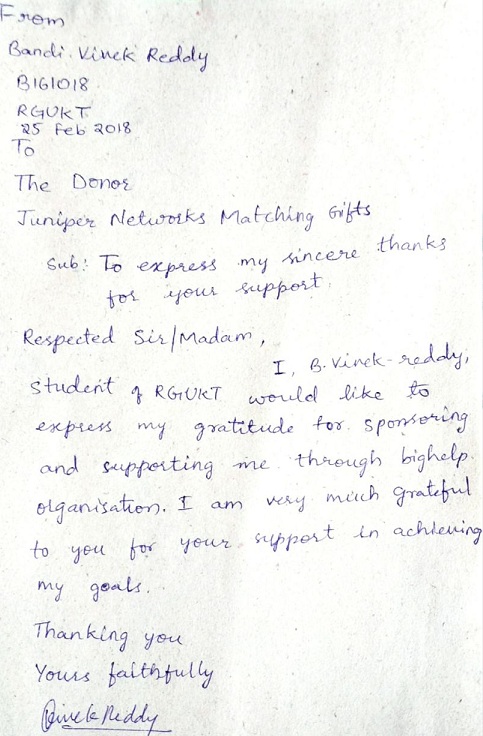 From
Bandi. Vivek Reddy
B161018
RGUKT
25 Feb 2018
To
The Donor
Juniper Networks Matching Gifts
Sub: To express my sincere thanks
for your support.
Respected Sir/Madam,
I, B. Vivek-reddy,
student of RGUKT would like to
express my gratitude for sponsoring
and supporting me through bighelp
olganisation. I am very much grateful
to you for your support in achieving
my goals.
Thanking you
Yours faithfully
Vivek Reddy